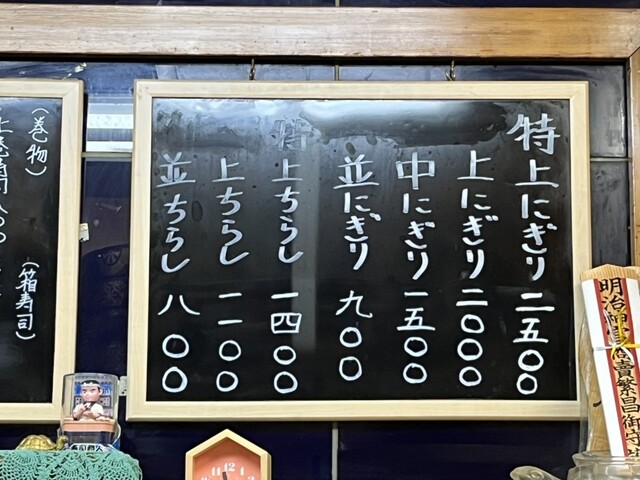 特上にぎり 二五〇〇
上にぎり 二〇〇〇
中にぎり 一五〇〇
並にぎり 九〇〇
特上ちらし 一四〇〇
上ちらし 一一〇〇
並ちらし 八〇〇
(巻物)
(箱寿司)
明治神
繁昌御守
12